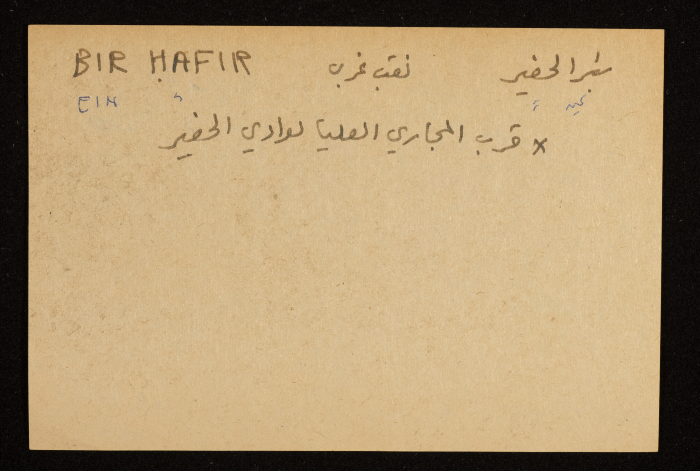 BIR ḤAFIR نقب غربي بئر الحفير
EIN " عين "
x قرب المجاري العليا لوادي الحفير